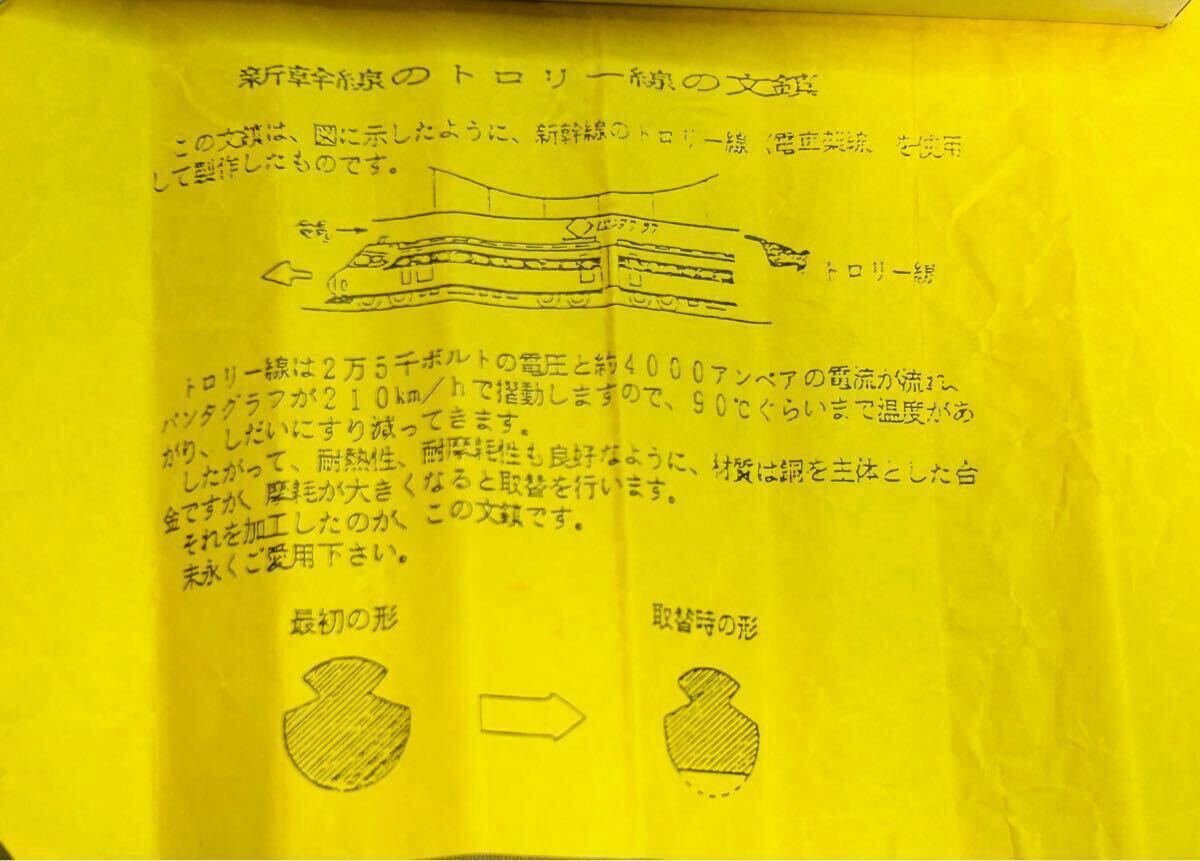 新幹線のトロリー線の文鎮
この文鎮は、図に示したように、新幹線のトロリー線（電車架線）を使用
して製作したものです。
パンタグラフ
トロリー線
トロリー線は2万5千ボルトの電圧と約4000アンペアの電流が流れ、
パンタグラフが210km/hで摺動しますので、90℃ぐらいまで温度があ
がり、しだいにすり減ってきます。
したがって、耐熱性、耐摩耗性も良好なように、材質は銅を主体とした合
金ですが、摩耗が大きくなると取替を行います。
それを加工したのが、この文鎮です。
末永くご愛用下さい。
最初の形
取替時の形